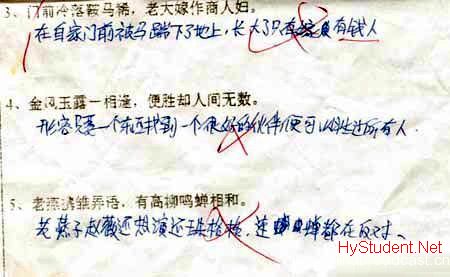 3、门前冷落鞍马稀，老大嫁作商人妇。
在自家门前被马踹下了地上，长大了只有嫁有钱人
4、金风玉露一相逢，便胜却人间无数。
形容只要一个东西找到一个很好的伙伴便可以胜过所有人.
5、老燕携雏弄语，有高柳鸣蝉相和。
老燕子赵薇还想演还珠格格，连蝉都在反对、
HyStudent.Net